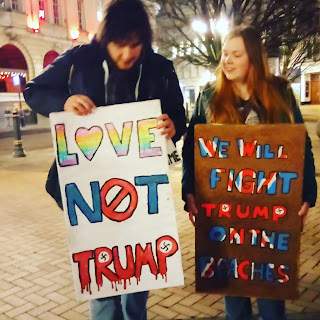 LOVE
NOT
TRUMP
ME
WE WILL
FIGHT
TRUMP
ON THE
BEACHES